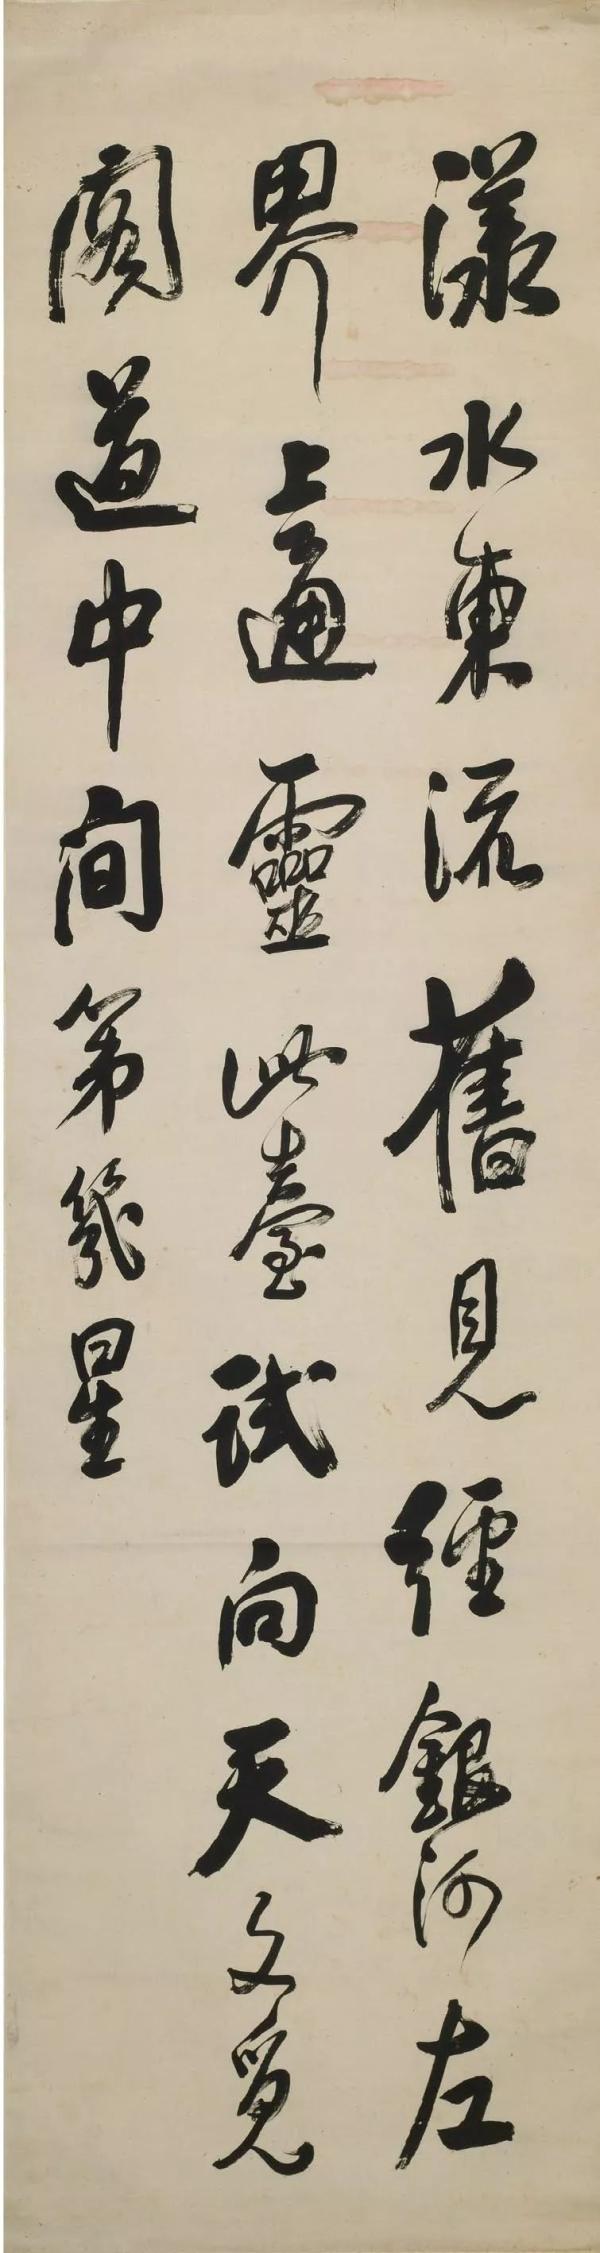 漾水東流舊見經銀河左
界上通靈此臺試向天文覓
閣道中間第幾星